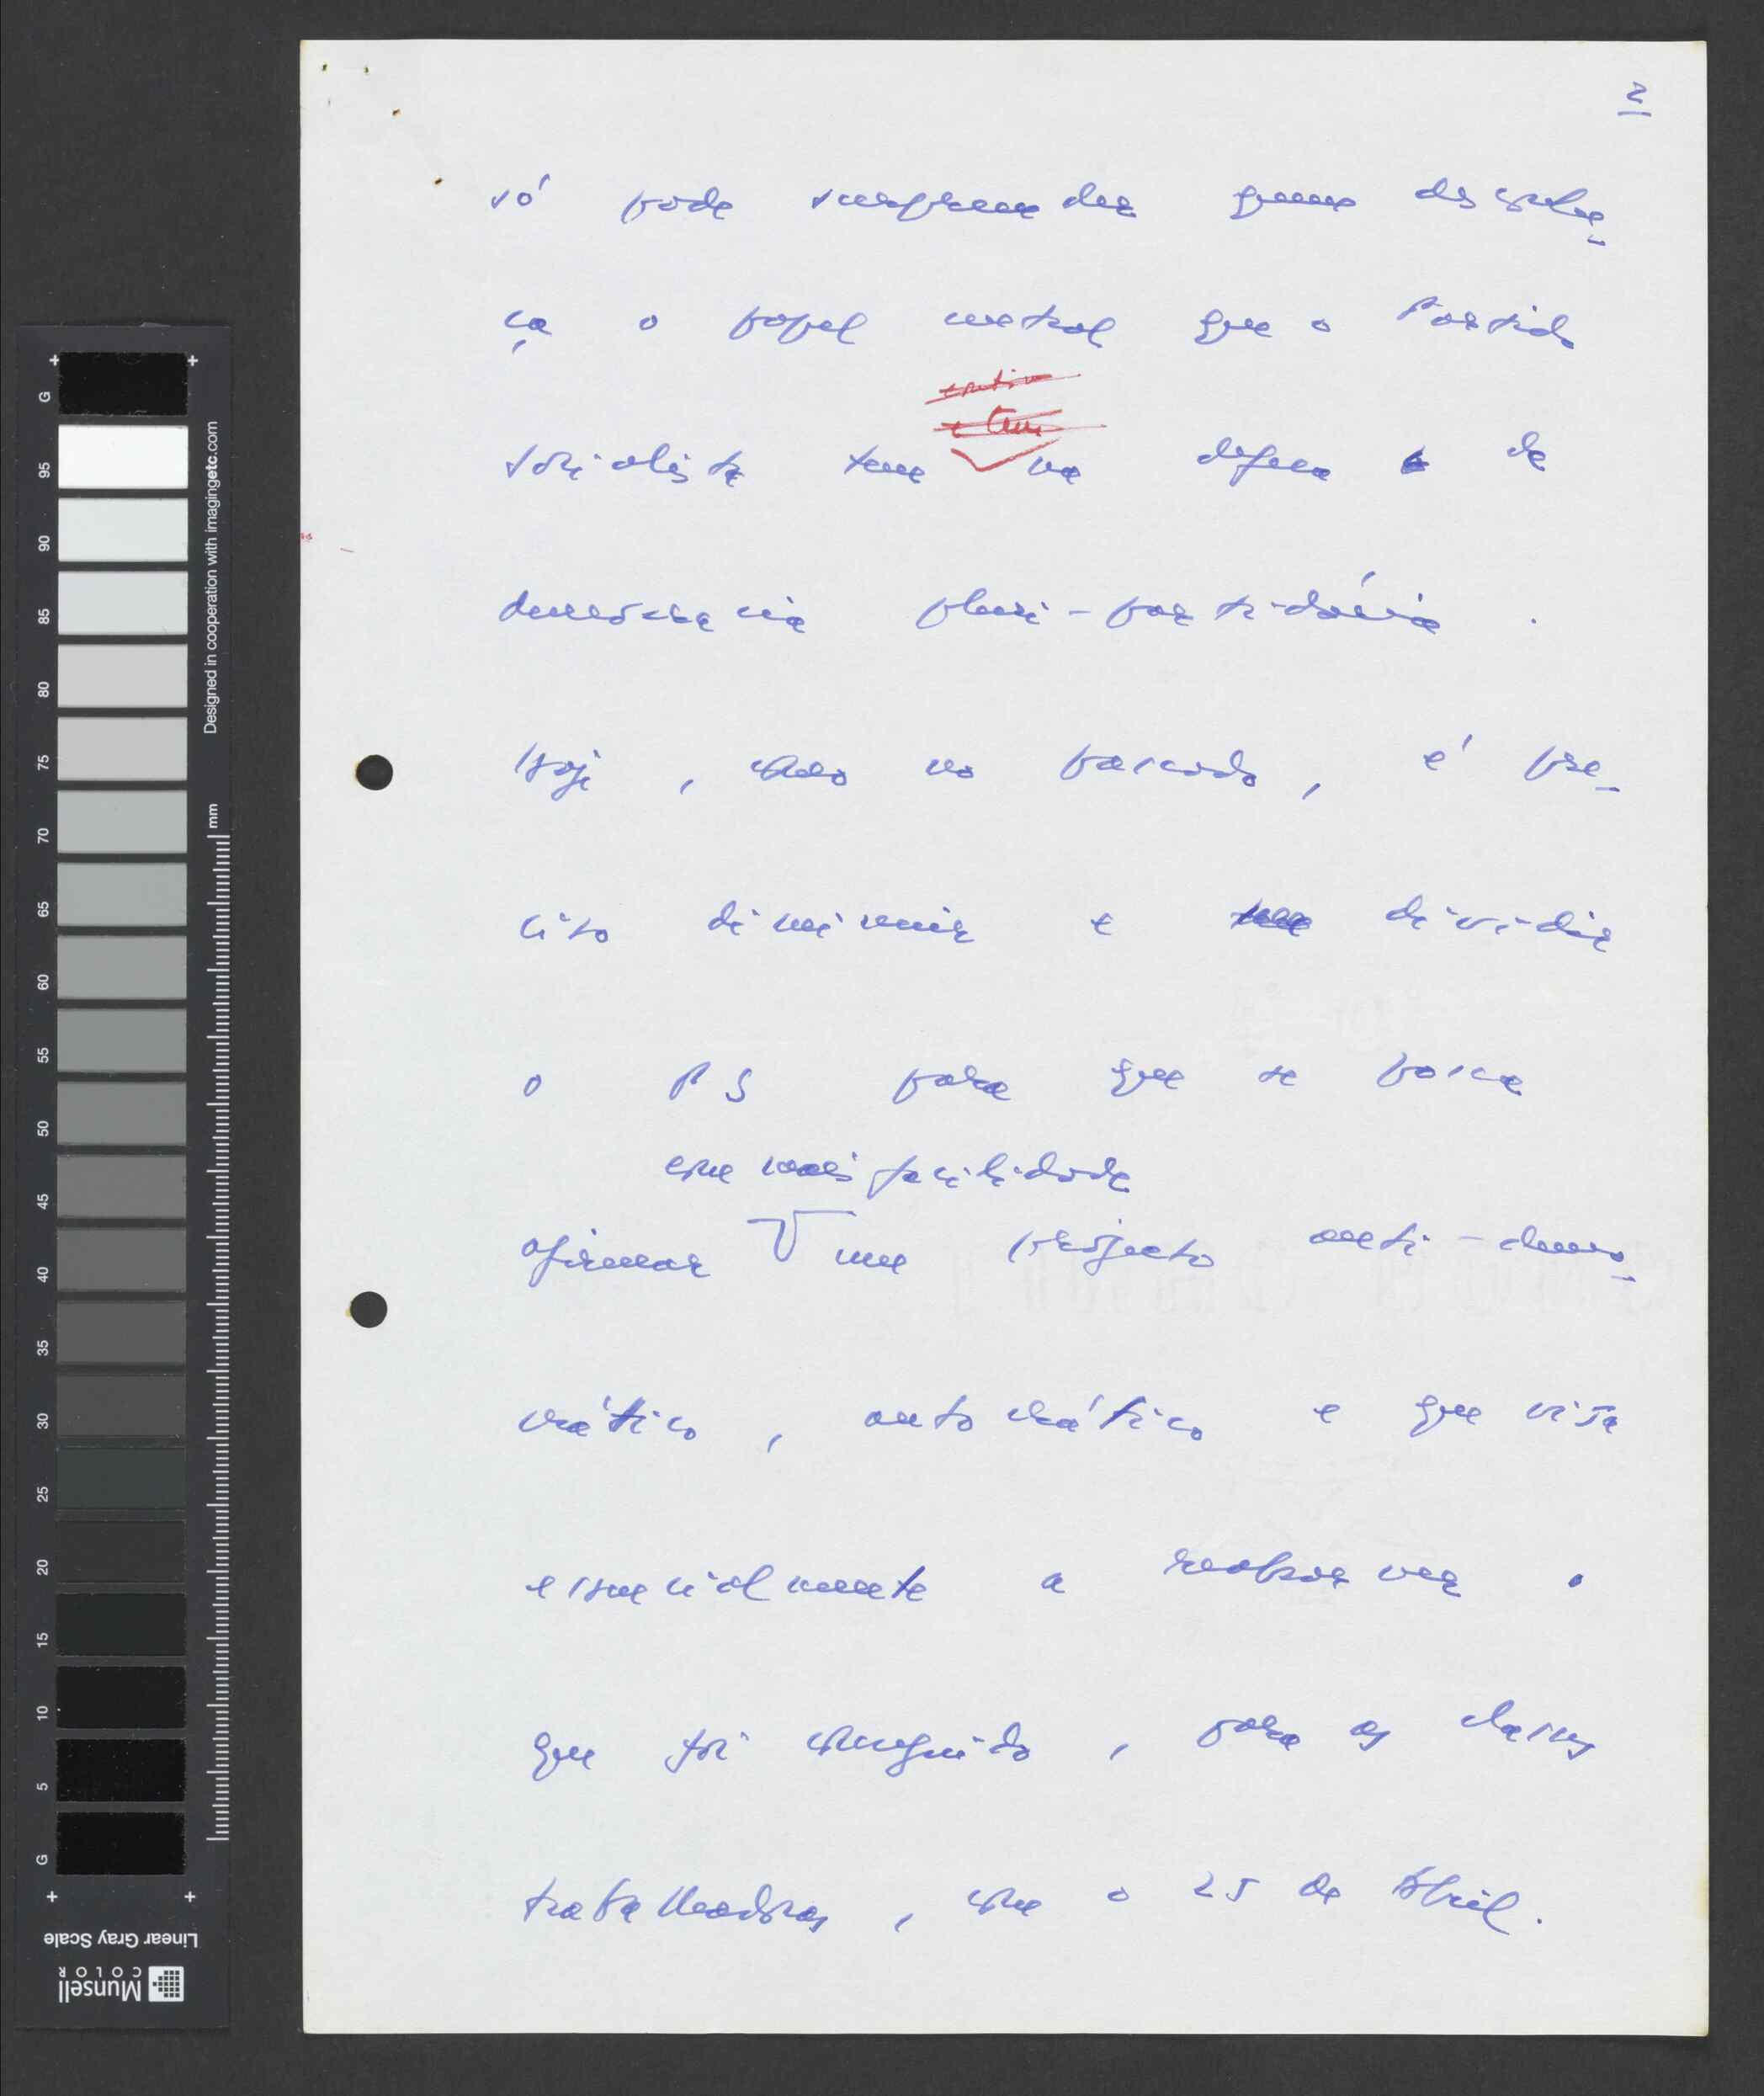 2
só pode surpreender quem desconhe-
ça o papel central que o Partido
Socialista tem na defesa da
democracia pluri-partidária.
Hoje, como no passado, é pre-
ciso diminuir e dividir
o PS para que se possa
com mais facilidade
afirmar um projecto anti-demo-
crático, autocrático e que visa
essencialmente a reabsorver o
que foi conseguido, para as classes
trabalhadoras, com o 25 de Abril.
G 95 90 85 80 75 70 65 60 55 50 45 40 35 30 25 20 15 10 5 G
Designed in cooperation with imagingetc.com
mm
Linear Gray Scale
Munsell
COLOR